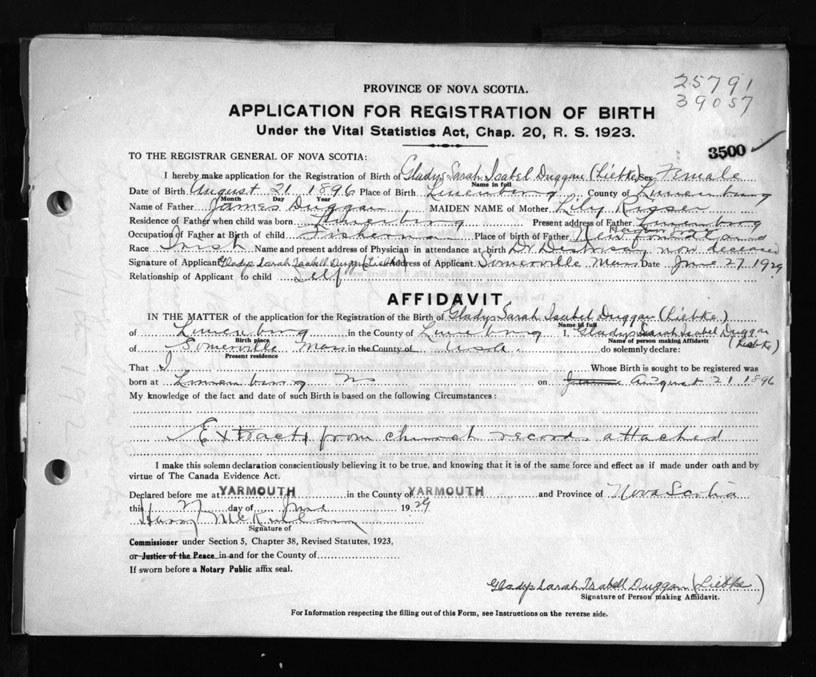 25791
39057
PROVINCE OF NOVA SCOTIA.
APPLICATION FOR REGISTRATION OF BIRTH
Under the Vital Statistics Act, Chap. 20, R. S. 1923.
3500
TO THE REGISTRAR GENERAL OF NOVA SCOTIA:
I hereby make application for the Registration of Birth of Gladys Sarah Isabel Duggan (Liebke) Sex Female
Name in full
Date of Birth August 21 1896 Place of Birth Lunenburg County of Lunenburg
Month Day Year
Name of Father James Duggan MAIDEN NAME of Mother Lily
Residence of Father when child was born Lunenburg Present address of Father Lunenburg
Occupation of Father at Birth of child Fisherman Place of birth of Father Newfoundland
Race Irish Name and present address of Physician in attendance at birth Dr now deceased
Signature of Applicant Gladys Sarah Isabell Duggan (Liebke) Address of Applicant Somerville Mass Date June 27 1929
Relationship of Applicant to child Self
AFFIDAVIT
IN THE MATTER of the application for the Registration of the Birth of Gladys Sarah Isabel Duggan (Liebke)
Name in full
of Lunenburg in the County of Lunenburg I, Gladys Sarah Isabel Duggan (Liebke)
Birth place Name of person making Affidavit
of Somerville Mass in the County of do solemnly declare:
Present residence
That I Whose Birth is sought to be registered was
born at Lunenburg NS on June August 21 1896
My knowledge of the fact and date of such Birth is based on the following Circumstances:
Extracts from church records attached
I make this solemn declaration conscientiously believing it to be true, and knowing that it is of the same force and effect as if made under oath and by
virtue of The Canada Evidence Act.
Declared before me at YARMOUTH in the County of YARMOUTH and Province of Nova Scotia
this 27 day of June 1929
Signature of
Commissioner under Section 5, Chapter 38, Revised Statutes, 1923,
or Justice of the Peace in and for the County of
If sworn before a Notary Public affix seal.
Gladys Sarah Isabell Duggan (Liebke)
Signature of Person making Affidavit.
For Information respecting the filling out of this Form, see Instructions on the reverse side.